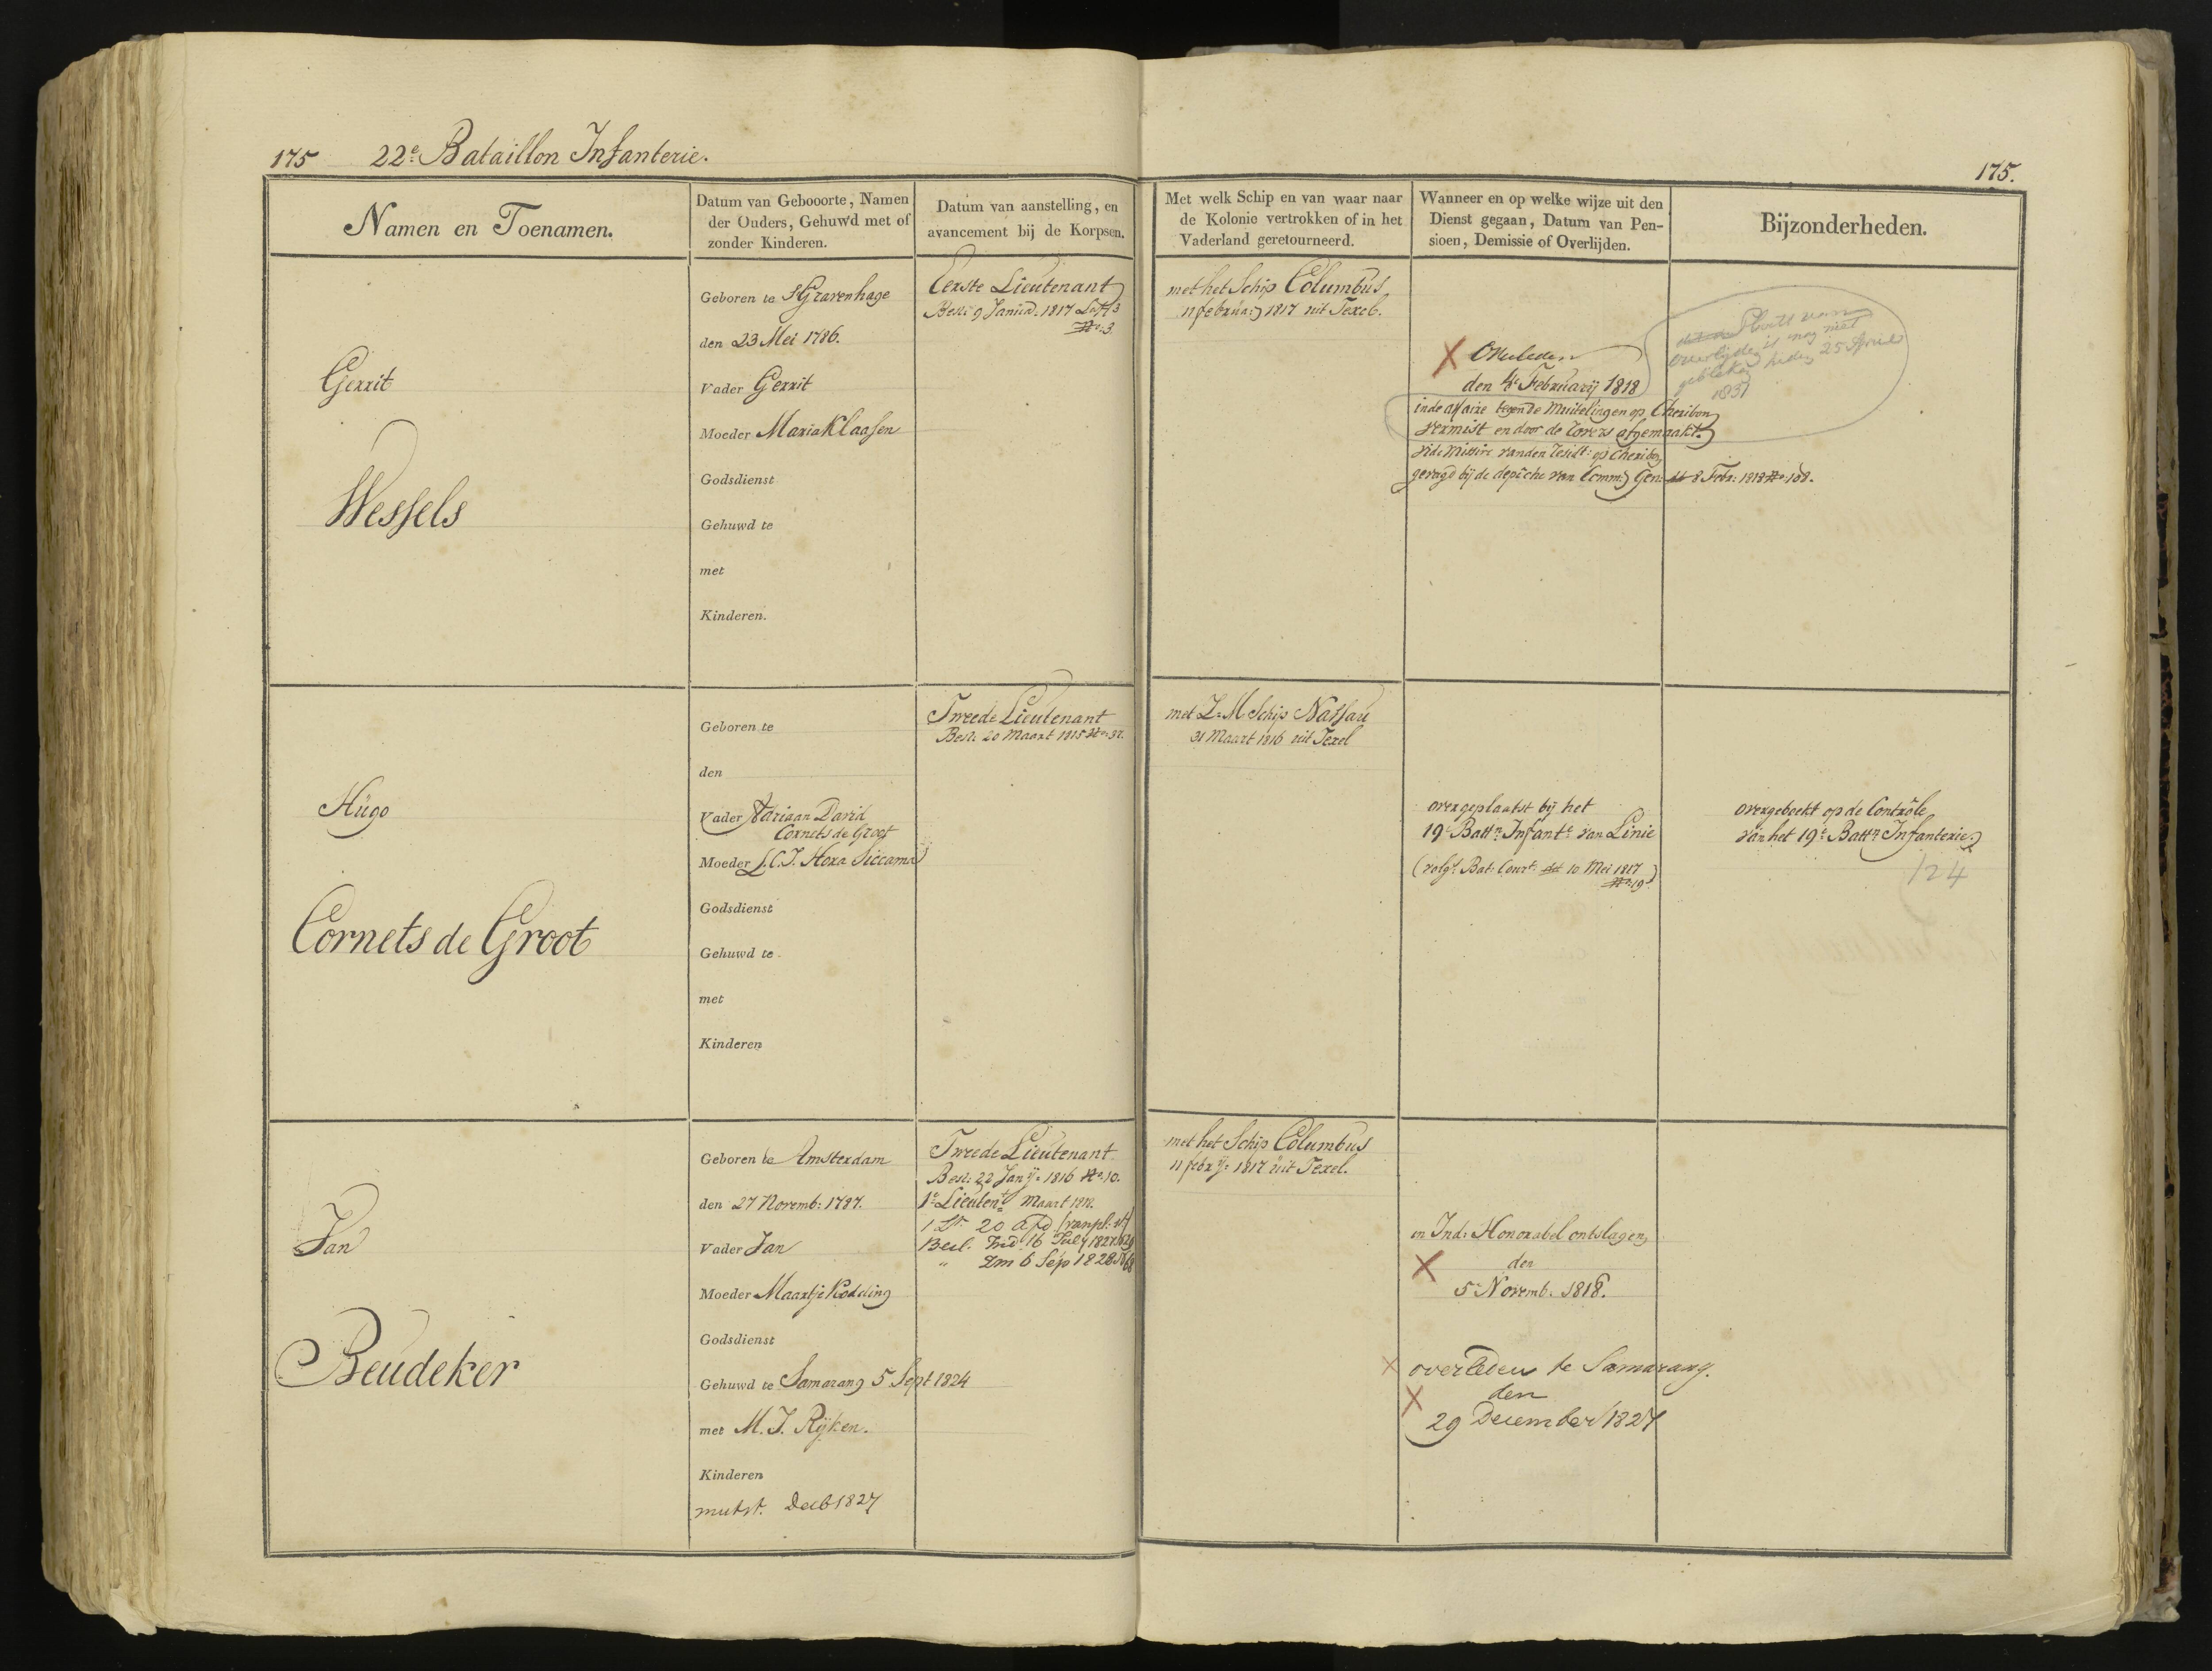 175 22e Bataillon Infanterie.
175.
Namen en Toenamen.
Datum van Gebooorte, Namen
der Ouders, Gehuwd met of
zonder Kinderen.
Datum van aanstelling, en
avancement bij de Korpsen.
Met welk Schip en van waar naar
de Kolonie vertrokken of in het
Vaderland geretourneerd.
Wanneer en op welke wijze uit den
Dienst gegaan, Datum van Pen-
sioen, Demissie of Overlijden.
Bijzonderheden.
Gerrit
Wessels
Geboren te S'Gravenhage
den 23 Mei 1786.
Vader Gerrit
Moeder Maria Klaasen
Godsdienst
Gehuwd te
met
Kinderen.
Eerste Lieutenant
Besl: 9 Januā: 1817 La A3
No: 3.
met het Schip Columbus
11 februa: 1817 uit Texel.
Overleden
den 4e February 1818
in de affaire tegen de Muitelingen op Cheribon
vermist en door de rovers afgemaakt.
vide missive van den Residt: op Cheribon
gevoegd bij de depêche van Comm: Gen: dd 8 Febr: 1818 No: 108.
van
overlijden is nog niet
gebleken heden 25 April
1831
Hugo
Cornets de Groot
Geboren te
den
Vader Adriaan David
Cornets de Groot
Moeder L.C.J. Hora Siccama
Godsdienst
Gehuwd te
met
Kinderen
Tweede Lieutenant
Besl: 20 Maart 1815 No: 37.
met Z: M Schip Nassau
31 Maart 1816 uit Texel
overgeplaatst bij het
19e Battn Infante van Linie
(volgs Bat: Cour: dd 10 Mei 1817
No: 19)
overgeboekt op de Contrôle
van het 19e Battn Infanterie.
124
Jan
Beudeker
Geboren te Amsterdam
den 27 Novemb: 1787.
Vader Jan
Moeder Maartje Kodeling
Godsdienst
Gehuwd te Samarang 5 Sept 1824
met M. J. Rijken.
Kinderen
mutst. Decb 1827
Tweede Lieutenant
Besl: 22 Jany: 1816 No: 10.
1e Lieutent Maart 1818.
1 Lt. 20 afd
Besl. Ind 16 July 1827
" Zm 6 Sep 1828 No 68
met het Schip Columbus
11 febry: 1817 uit Texel.
in Ind: Honorabel ontslagen
den
5e Novemb. 1818.
overleden te Samarang.
den
29 December 1827